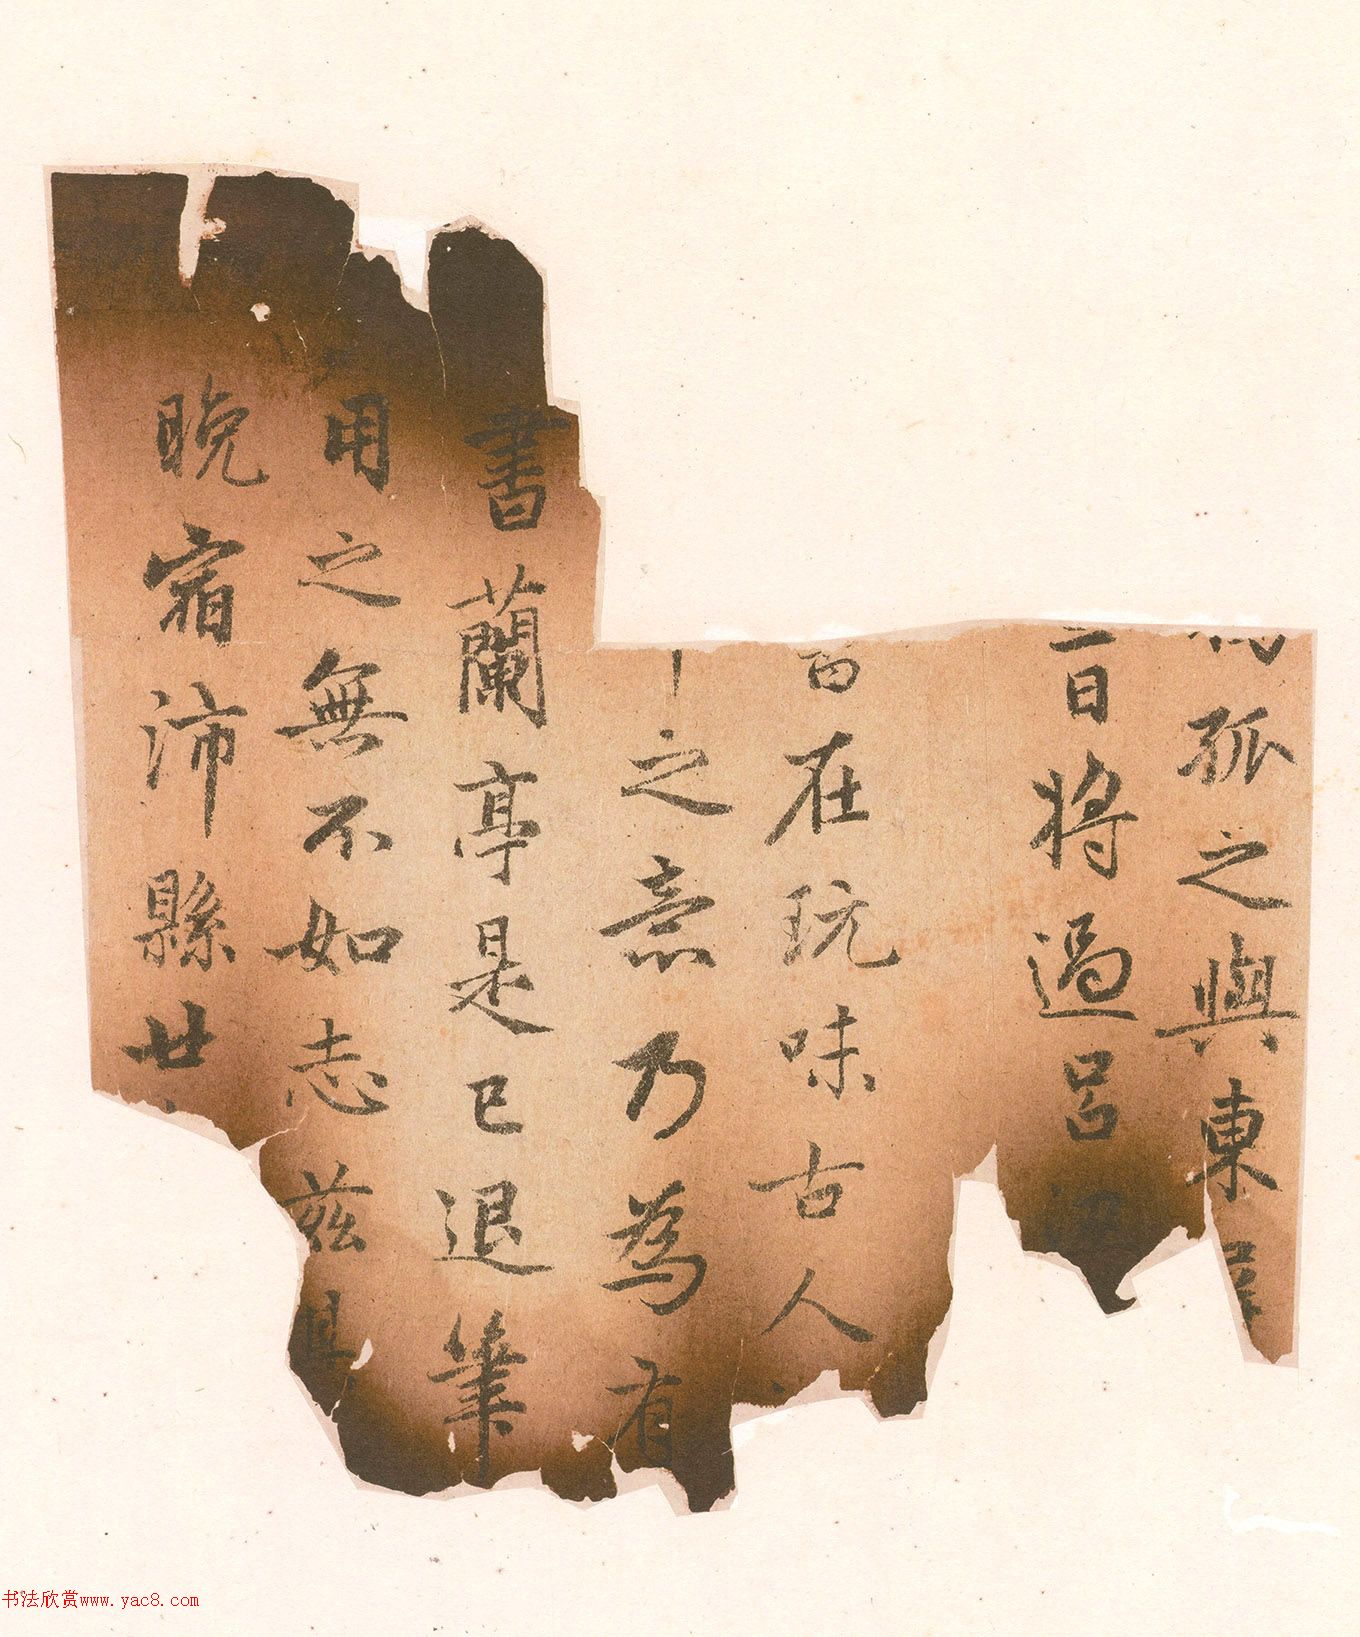 孤之與東
百將過呂
在玩味古人
之意乃為有
書蘭亭是已退筆
用之無不如志茲其
晚宿沛縣廿
书法欣赏www.yac8.com